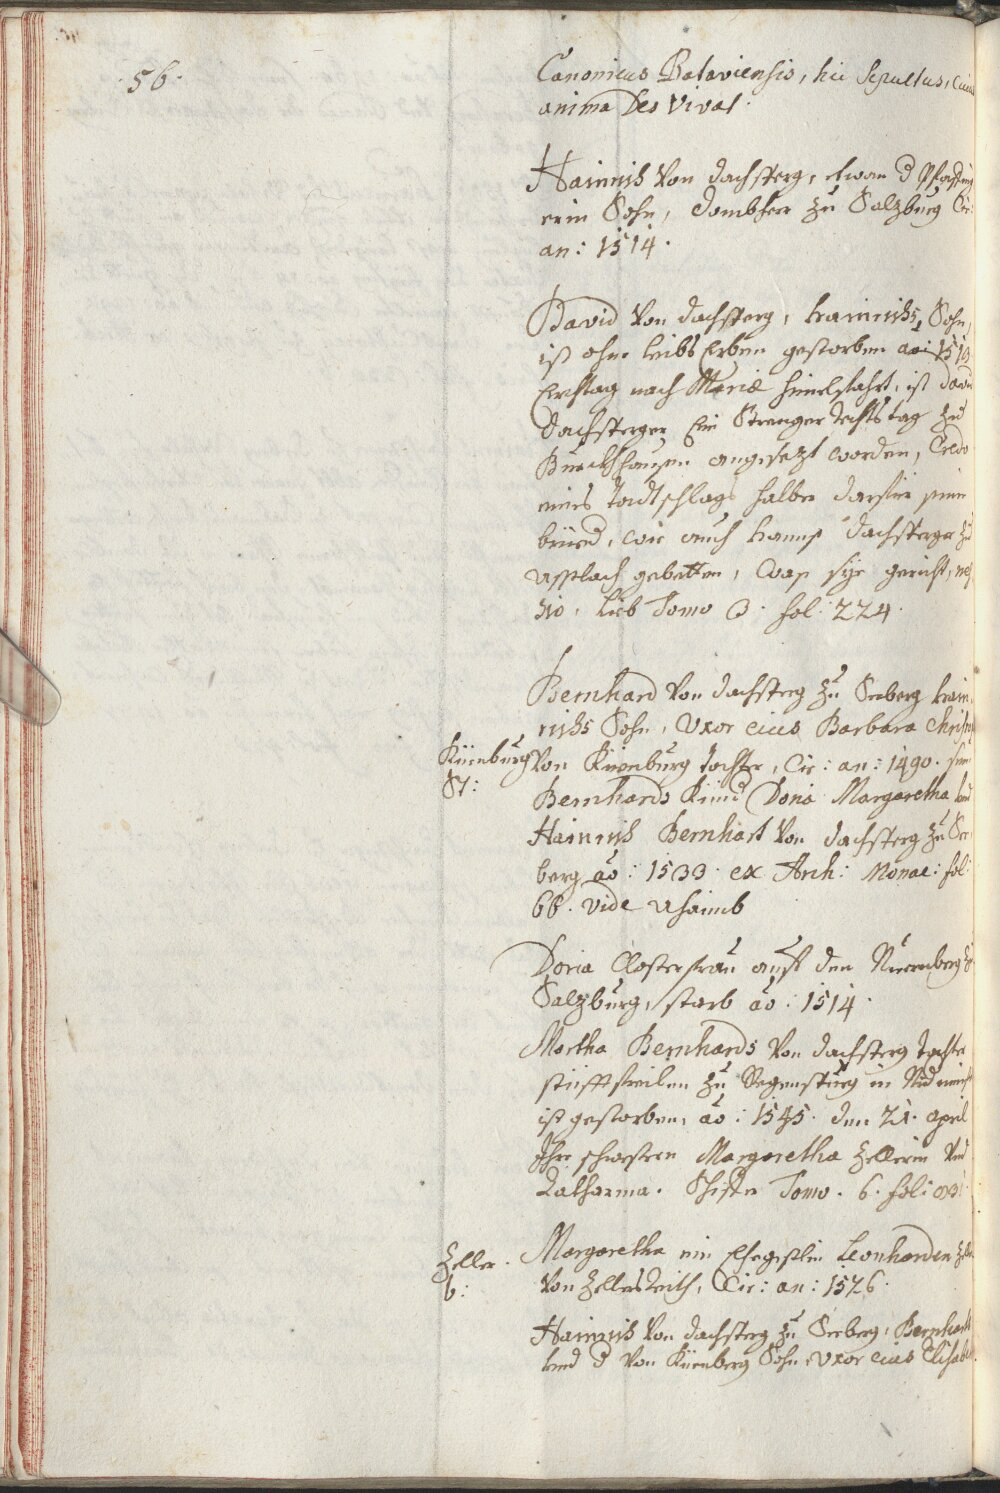 56.
Canonicus Bataviensis, hic Sepultus, cuius
anima Deo Vivat.
Hainrich Von Dachsperg, etwan d Pfäffing
erin Sohn, Dombherr zu Salzburg Cir:
an: 1514.
David Von Dachsperg, Hainrichs Sohn,
ist ohne Leibs Erben gestorben ao: 1513
Erchtag nach Mariæ himelfahrt, ist David
Dachsperger Ein Strenger Rechtstag zu
Burckhhausen angesezt worden, Credo
eines Todtschlags halber darfür seine
brüed, wie auch Hanns Dachsperger zu
Aspach gebetten, Was sye gericht, nes
cio, Lieb Tomo 3. fol: 224.
Bernhard Von Dachsperg zu Seeberg Hain
richs Sohn, Uxor eius Barbara Christoph
Küenburg Von Küenburg Tochter, Cir: an: 1490. sein
St: Bernhards Kind Doria Margaretha Und
Hainrich Bernhart Von Dachsperg zu See
berg ao: 1533. ex Arch: Monac: fol:
66. Vide Ahaimb
Doria Closterfrau auff den Nürnberg zu
Salzburg, starb ao: 1514.
Martha Bernhards Von Dachsperg Tochter
stüfftfreilen zu Regenspurg in Nidermünster
ist gestorben, ao: 1545. den 21. april
Ihre schwestern Margaretha Zellerin Und
Catharina. Tomo. 6. fol:
Zeller. Margaretha ein Ehegstlin Leonharden Zeller
b: Von Zellersreith, Cir: an: 1526.
Hainrich Von Dachsperg zu Seeberg, Bernhards
Und d Von Küenberg Sohn, Uxor eius Elisabeth